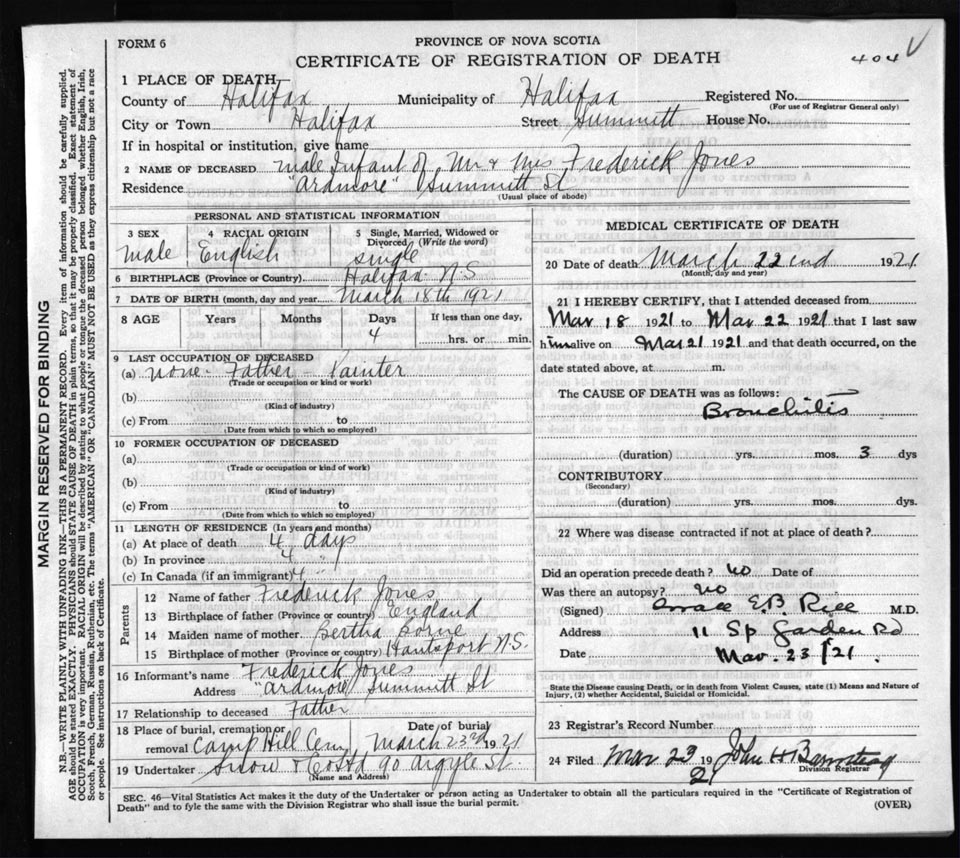 FORM 6
PROVINCE OF NOVA SCOTIA
CERTIFICATE OF REGISTRATION OF DEATH
404
1 PLACE OF DEATH
County of Halifax Municipality of Halifax Registered No.
(For use of Registrar General only)
City or Town Halifax Street Summitt House No.
If in hospital or institution, give name
2 NAME OF DECEASED male Infant of Mr & Mrs Frederick Jones
Residence "ardmore" Summitt St
(Usual place of abode)
PERSONAL AND STATISTICAL INFORMATION
3 SEX male
4 RACIAL ORIGIN English
5 Single, Married, Widowed or Divorced (Write the word) single
6 BIRTHPLACE (Province or Country) Halifax N.S
7 DATE OF BIRTH (month, day and year) March 18th 1921
8 AGE Years Months Days If less than one day,
4 hrs. or min.
9 LAST OCCUPATION OF DECEASED
(a) none. Father - Painter
(Trade or occupation or kind or work)
(b)
(Kind of industry)
(c) From to
(Date from which to which so employed)
10 FORMER OCCUPATION OF DECEASED
(a)
(Trade or occupation or kind of work)
(b)
(Kind of industry)
(c) From to
(Date from which to which so employed)
11 LENGTH OF RESIDENCE (In years and months)
(a) At place of death 4 days
(b) In province 4 "
(c) In Canada (if an immigrant) 4 "
Parents
12 Name of father Frederick Jones
13 Birthplace of father (Province or country) England
14 Maiden name of mother Bertha
15 Birthplace of mother (Province or country) Hantsport N.S.
16 Informant's name Frederick Jones
Address "ardmore" Summitt St
17 Relationship to deceased Father
18 Place of burial, cremation or removal Camp Hill Cem Date of burial March 23rd 1921
19 Undertaker Snow & Co Ltd 90 Argyle St.
(Name and Address)
MEDICAL CERTIFICATE OF DEATH
20 Date of death March 22nd 1921
(Month, day and year)
21 I HEREBY CERTIFY, that I attended deceased from
Mar 18 1921 to Mar 22 1921 that I last saw
him alive on Mar 21 1921 and that death occurred, on the
date stated above, at m.
The CAUSE OF DEATH was as follows:
Bronchitis
(duration) yrs. mos. 3 dys
CONTRIBUTORY
(Secondary)
(duration) yrs. mos. dys.
22 Where was disease contracted if not at place of death?
Did an operation precede death? no Date of
Was there an autopsy? no
(Signed) E.B. M.D.
Address 11 Sp Garden Rd
Date Mar. 23/21.
State the Disease causing Death, or in death from Violent Causes, state (1) Means and Nature of
Injury, (2) whether Accidental, Suicidal or Homicidal.
23 Registrar's Record Number
24 Filed Mar 23 1921 John H Barnstead
Division Registrar
SEC. 46—Vital Statistics Act makes it the duty of the Undertaker or person acting as Undertaker to obtain all the particulars required in the "Certificate of Registration of
Death" and to fyle the same with the Division Registrar who shall issue the burial permit. (OVER)
MARGIN RESERVED FOR BINDING
N.B.—WRITE PLAINLY WITH UNFADING INK—THIS IS A PERMANENT RECORD. Every item of information should be carefully supplied.
AGE should be stated EXACTLY. PHYSICIANS should STATE CAUSE OF DEATH in plain terms, so that it may be properly classified. Exact statement of
OCCUPATION is very important. RACIAL ORIGIN will be described by stating to what people or tongue the deceased person belonged whether English, Irish,
Scotch, French, German, Russian, Ruthenian, etc. The terms "AMERICAN" OR "CANADIAN" MUST NOT BE USED as they express citizenship but not a race
or people. See instructions on back of Certificate.